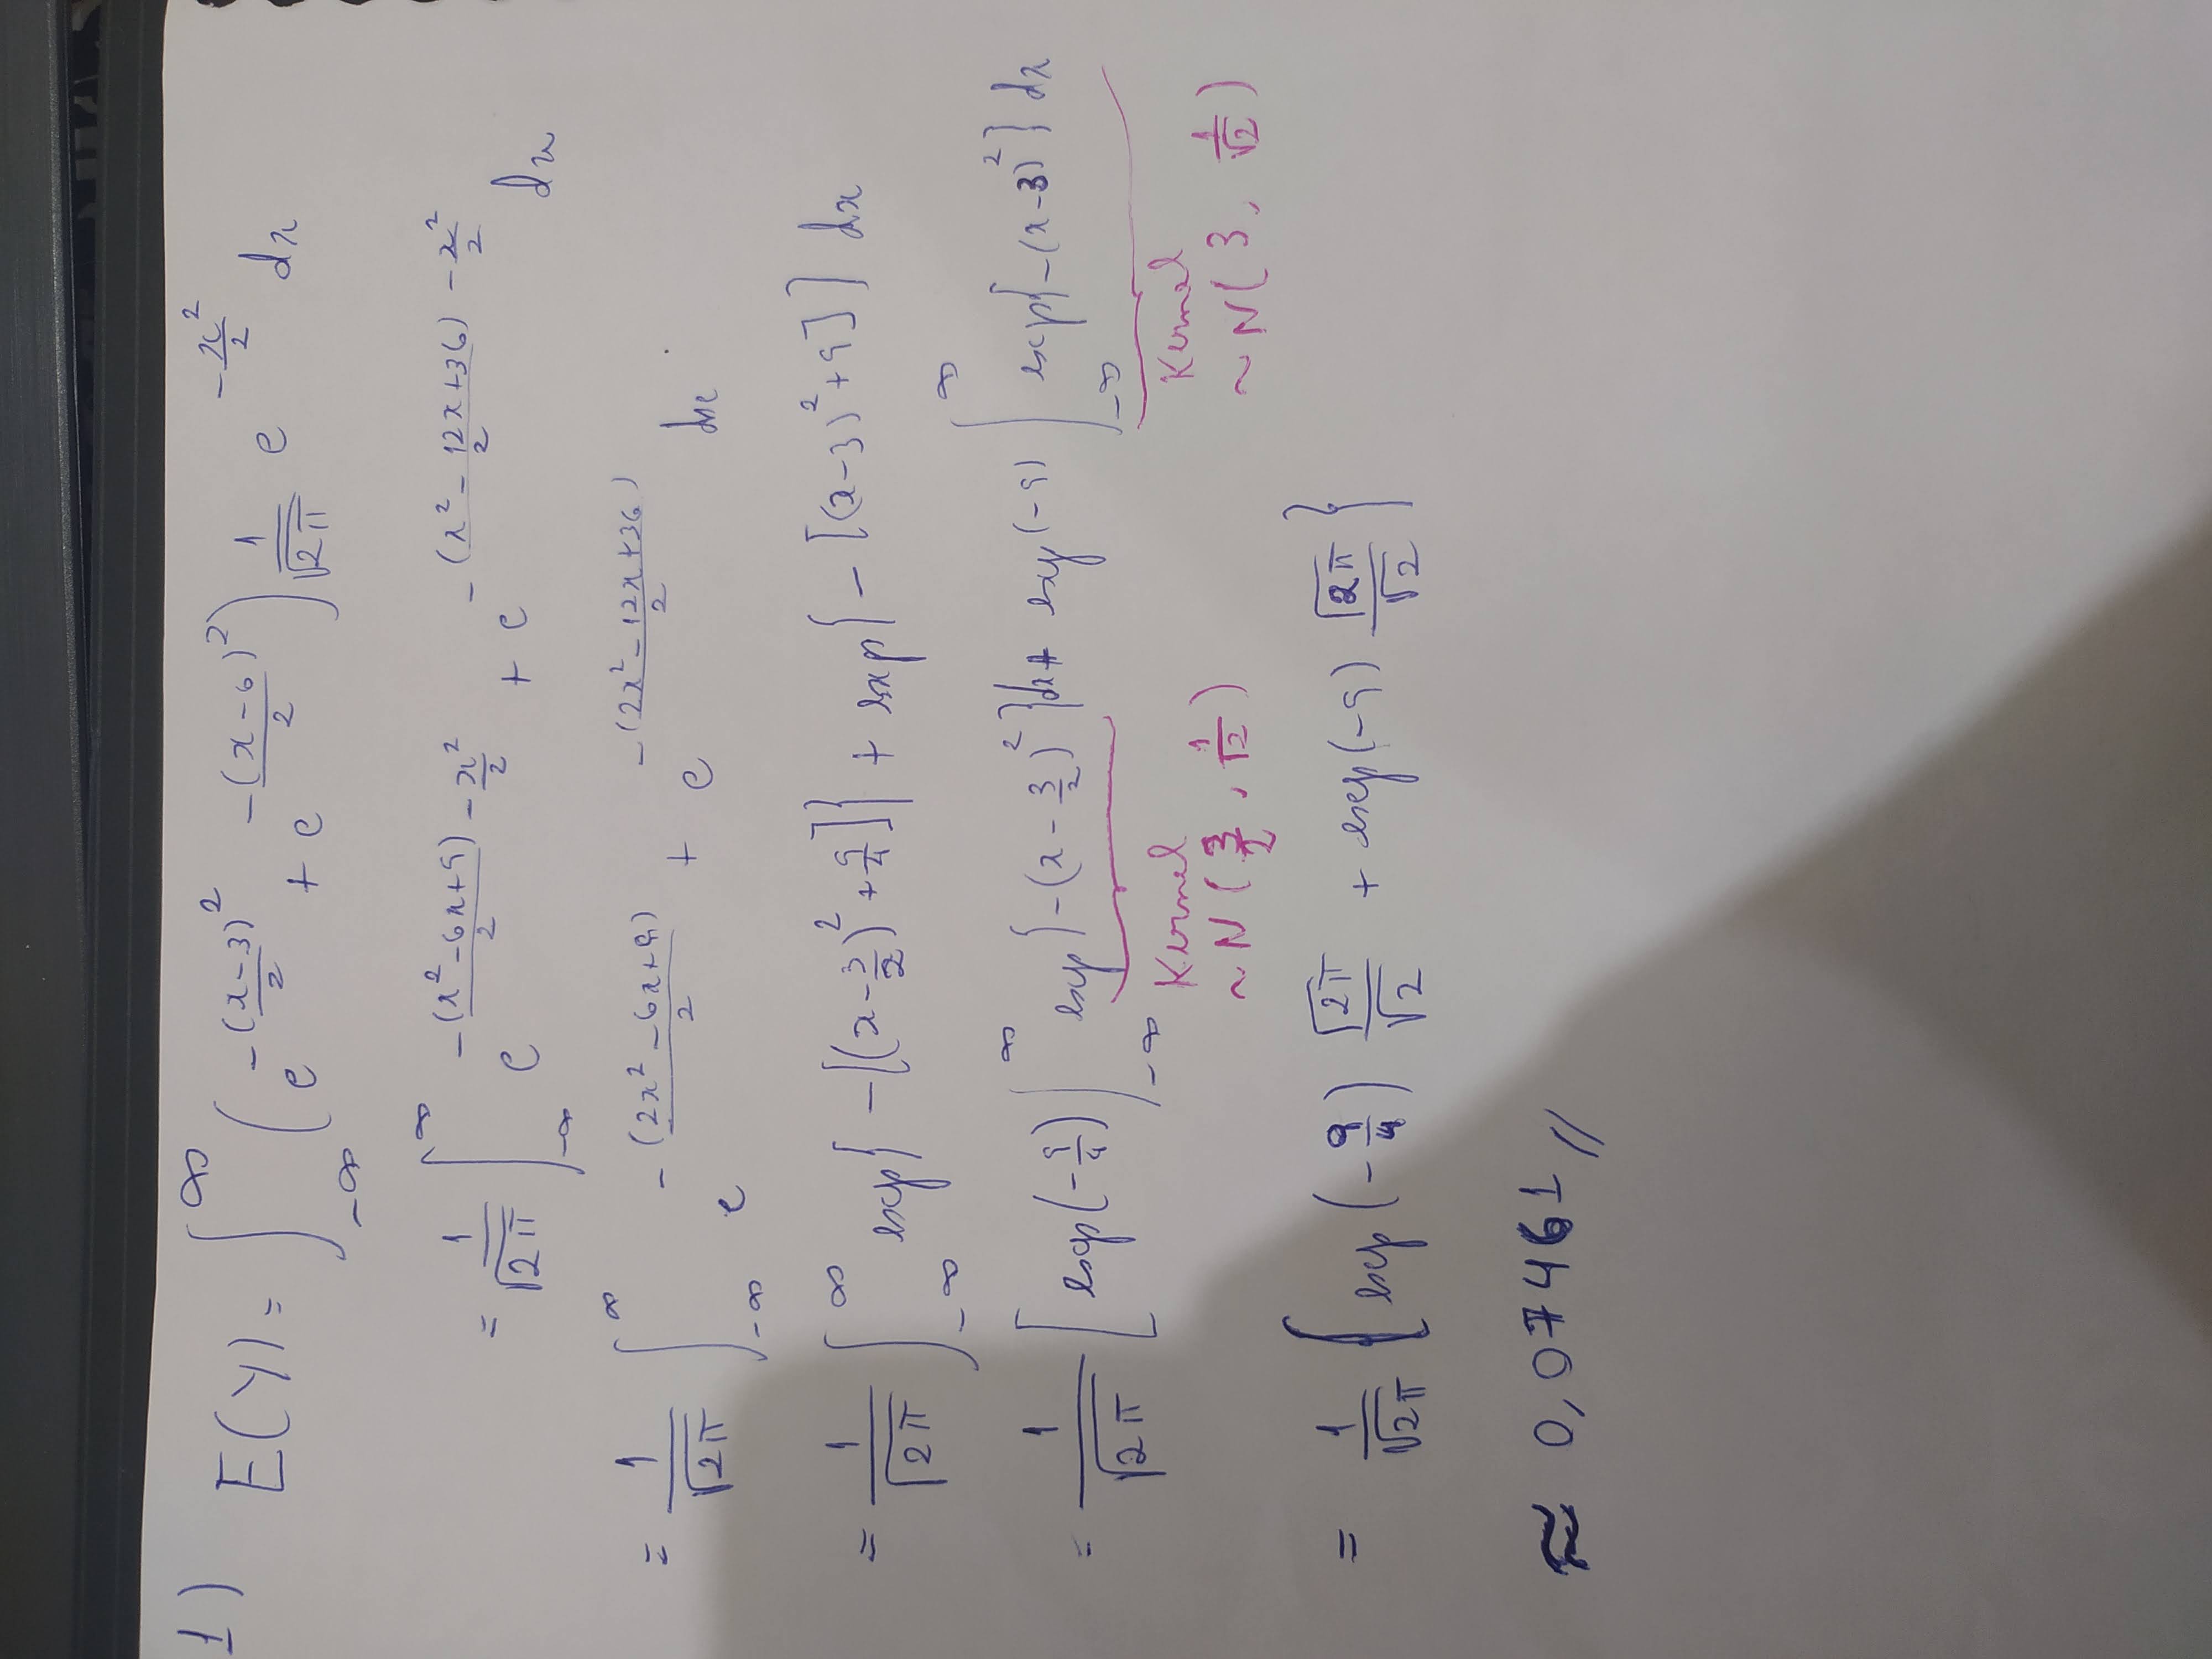 1) E(Y) = ∫_{-∞}^{∞} (e^{-(x-3)²/2} + e^{-(x-6)²/2}) 1/√2π e^{-x²/2} dx
= 1/√2π ∫_{-∞}^{∞} e^{-(x²-6x+9)/2 - x²/2} + e^{-(x²-12x+36)/2 - x²/2} dx
= 1/√2π ∫_{-∞}^{∞} e^{-(2x²-6x+9)/2} + e^{-(2x²-12x+36)/2} dx
= 1/√2π ∫_{-∞}^{∞} exp{-[(x-3/2)²+9/4]} + exp{-[(x-3)²+9]} dx
= 1/√2π [exp(-9/4) ∫_{-∞}^{∞} exp{-(x-3/2)²}dx + exp(-9) ∫_{-∞}^{∞} exp{-(x-3)²} dx
Kernel Kernel
~N(3/2, 1/√2) ~N(3, 1/√2)
= 1/√2π {exp(-9/4) √2π/√2 + exp(-9) √2π/√2}
≈ 0,07461 //